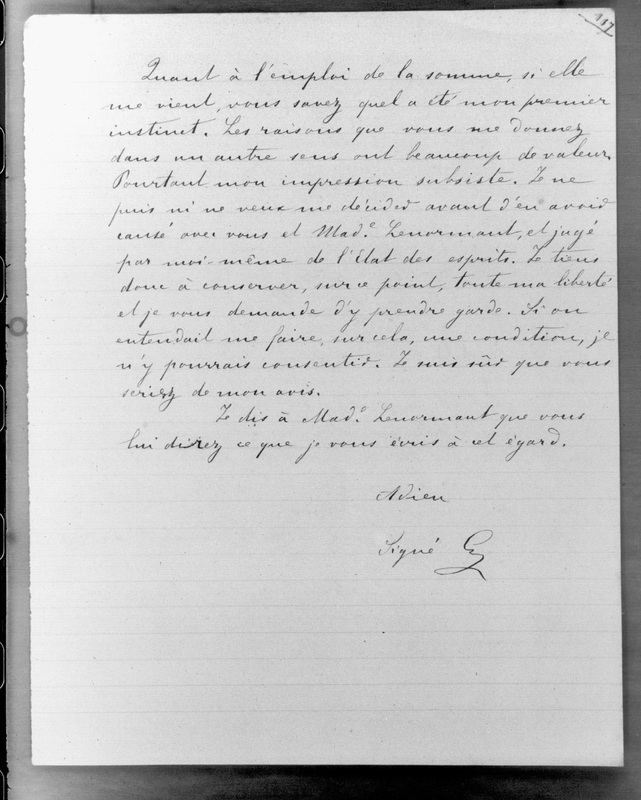 117
Quant à l'emploi de la somme, si elle
me vient, vous savez quel a été mon premier
instinct. Les raisons que vous me donnez
dans un autre sens ont beaucoup de valeur.
Pourtant mon impression subsiste. Je ne
puis ni ne veux me décider avant d'en avoir
causé avec vous et Mad.e Lenormant, et jugé
par moi-même de l'Etat des esprits. Je tiens
donc à conserver, sur ce point, toute ma liberté
et je vous demande d'y prendre garde. Si on
entendait me faire, sur cela, une condition, je
n'y pourrais consentir. Je suis sûr que vous
seriez de mon avis.
Je dis à Mad.e Lenormant que vous
lui direz ce que je vous écris à cet égard.
Adieu
Signé G